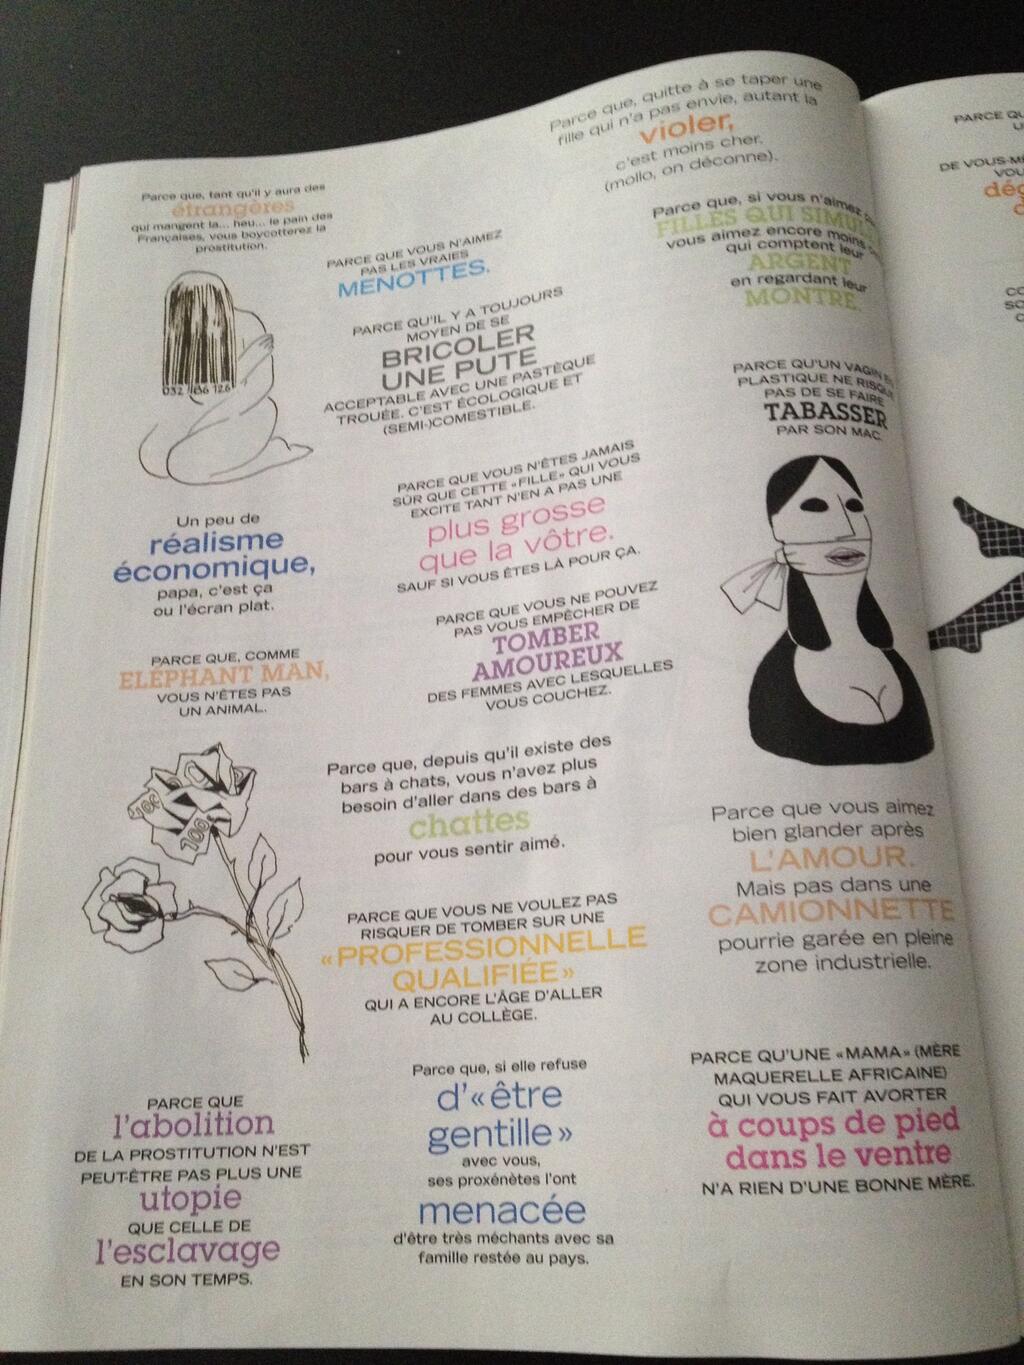 Parce que, tant qu'il y aura des
étrangères
qui mangent la... heu... le pain des
Françaises, vous boycotterez la
prostitution.
032 186 126
Un peu de
réalisme
économique,
papa, c'est ça
ou l'écran plat.
PARCE QUE, COMME
ELEPHANT MAN,
VOUS N'ÊTES PAS
UN ANIMAL.
100
100
PARCE QUE
l'abolition
DE LA PROSTITUTION N'EST
PEUT-ÊTRE PAS PLUS UNE
utopie
QUE CELLE DE
l'esclavage
EN SON TEMPS.
PARCE QUE VOUS N'AIMEZ
PAS LES VRAIES
MENOTTES.
PARCE QU'IL Y A TOUJOURS
MOYEN DE SE
BRICOLER
UNE PUTE
ACCEPTABLE AVEC UNE PASTÈQUE
TROUÉE. C'EST ÉCOLOGIQUE ET
(SEMI-)COMESTIBLE.
PARCE QUE VOUS N'ÊTES JAMAIS
SÛR QUE CETTE «FILLE» QUI VOUS
EXCITE TANT N'EN A PAS UNE
plus grosse
que la vôtre.
SAUF SI VOUS ÊTES LÀ POUR ÇA.
PARCE QUE VOUS NE POUVEZ
PAS VOUS EMPÊCHER DE
TOMBER
AMOUREUX
DES FEMMES AVEC LESQUELLES
VOUS COUCHEZ.
Parce que, depuis qu'il existe des
bars à chats, vous n'avez plus
besoin d'aller dans des bars à
chattes
pour vous sentir aimé.
PARCE QUE VOUS NE VOULEZ PAS
RISQUER DE TOMBER SUR UNE
«PROFESSIONNELLE
QUALIFIÉE»
QUI A ENCORE L'ÂGE D'ALLER
AU COLLÈGE.
Parce que, si elle refuse
d'«être
gentille»
avec vous,
ses proxénètes l'ont
menacée
d'être très méchants avec sa
famille restée au pays.
Parce que, quitte à se taper une
fille qui n'a pas envie, autant la
violer,
c'est moins cher.
(mollo, on déconne).
Parce que, si vous n'aimez
FILLES QUI
vous aimez encore moins
qui comptent leur
ARGENT
en regardant leur
MONTRE.
PARCE QU'UN VAGIN
PLASTIQUE NE RISQUE
PAS DE SE FAIRE
TABASSER
PAR SON MAC.
Parce que vous aimez
bien glander après
L'AMOUR.
Mais pas dans une
CAMIONNETTE
pourrie garée en pleine
zone industrielle.
PARCE QU'UNE «MAMA» (MÈRE
MAQUERELLE AFRICAINE)
QUI VOUS FAIT AVORTER
à coups de pied
dans le ventre
N'A RIEN D'UNE BONNE MÈRE.
PARCE
DE